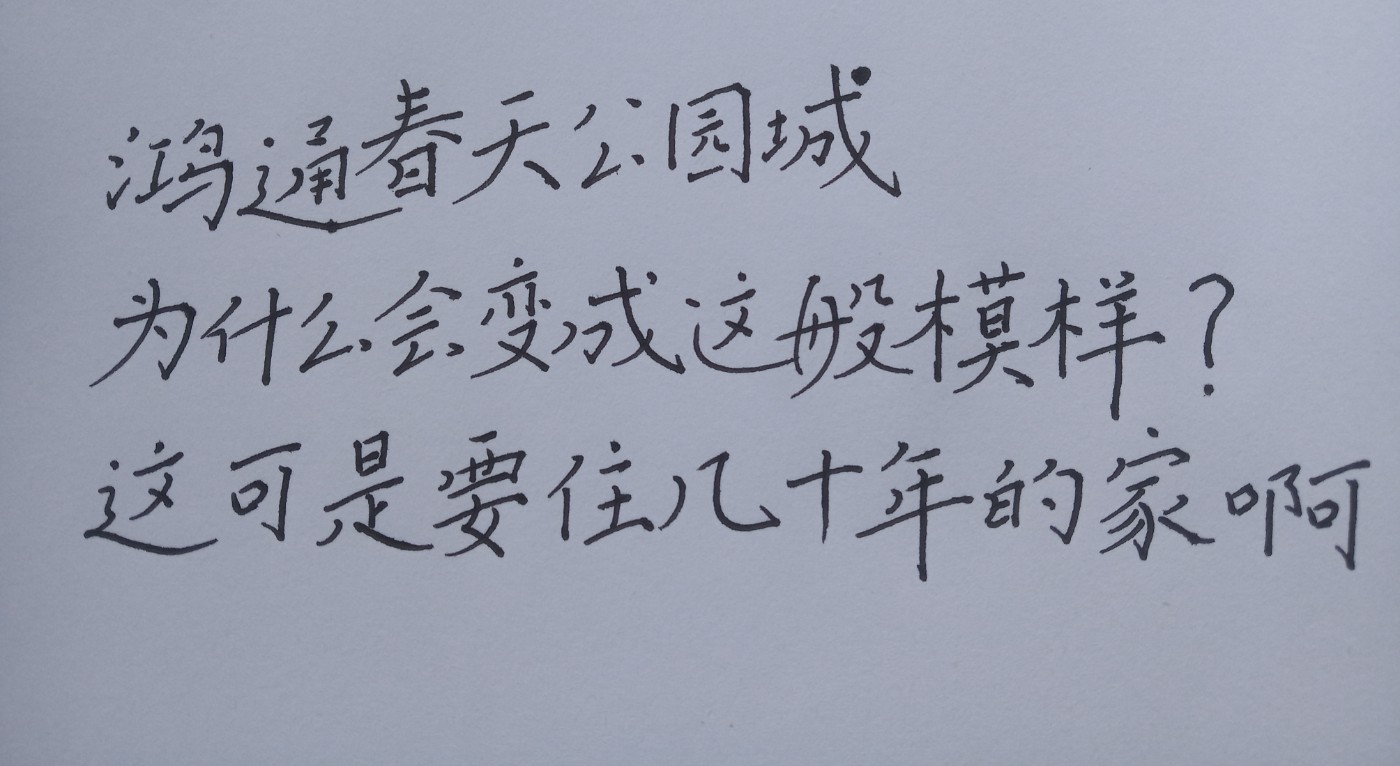 鸿通春天公园城
为什么会变成这般模样？
这可是要住几十年的家啊